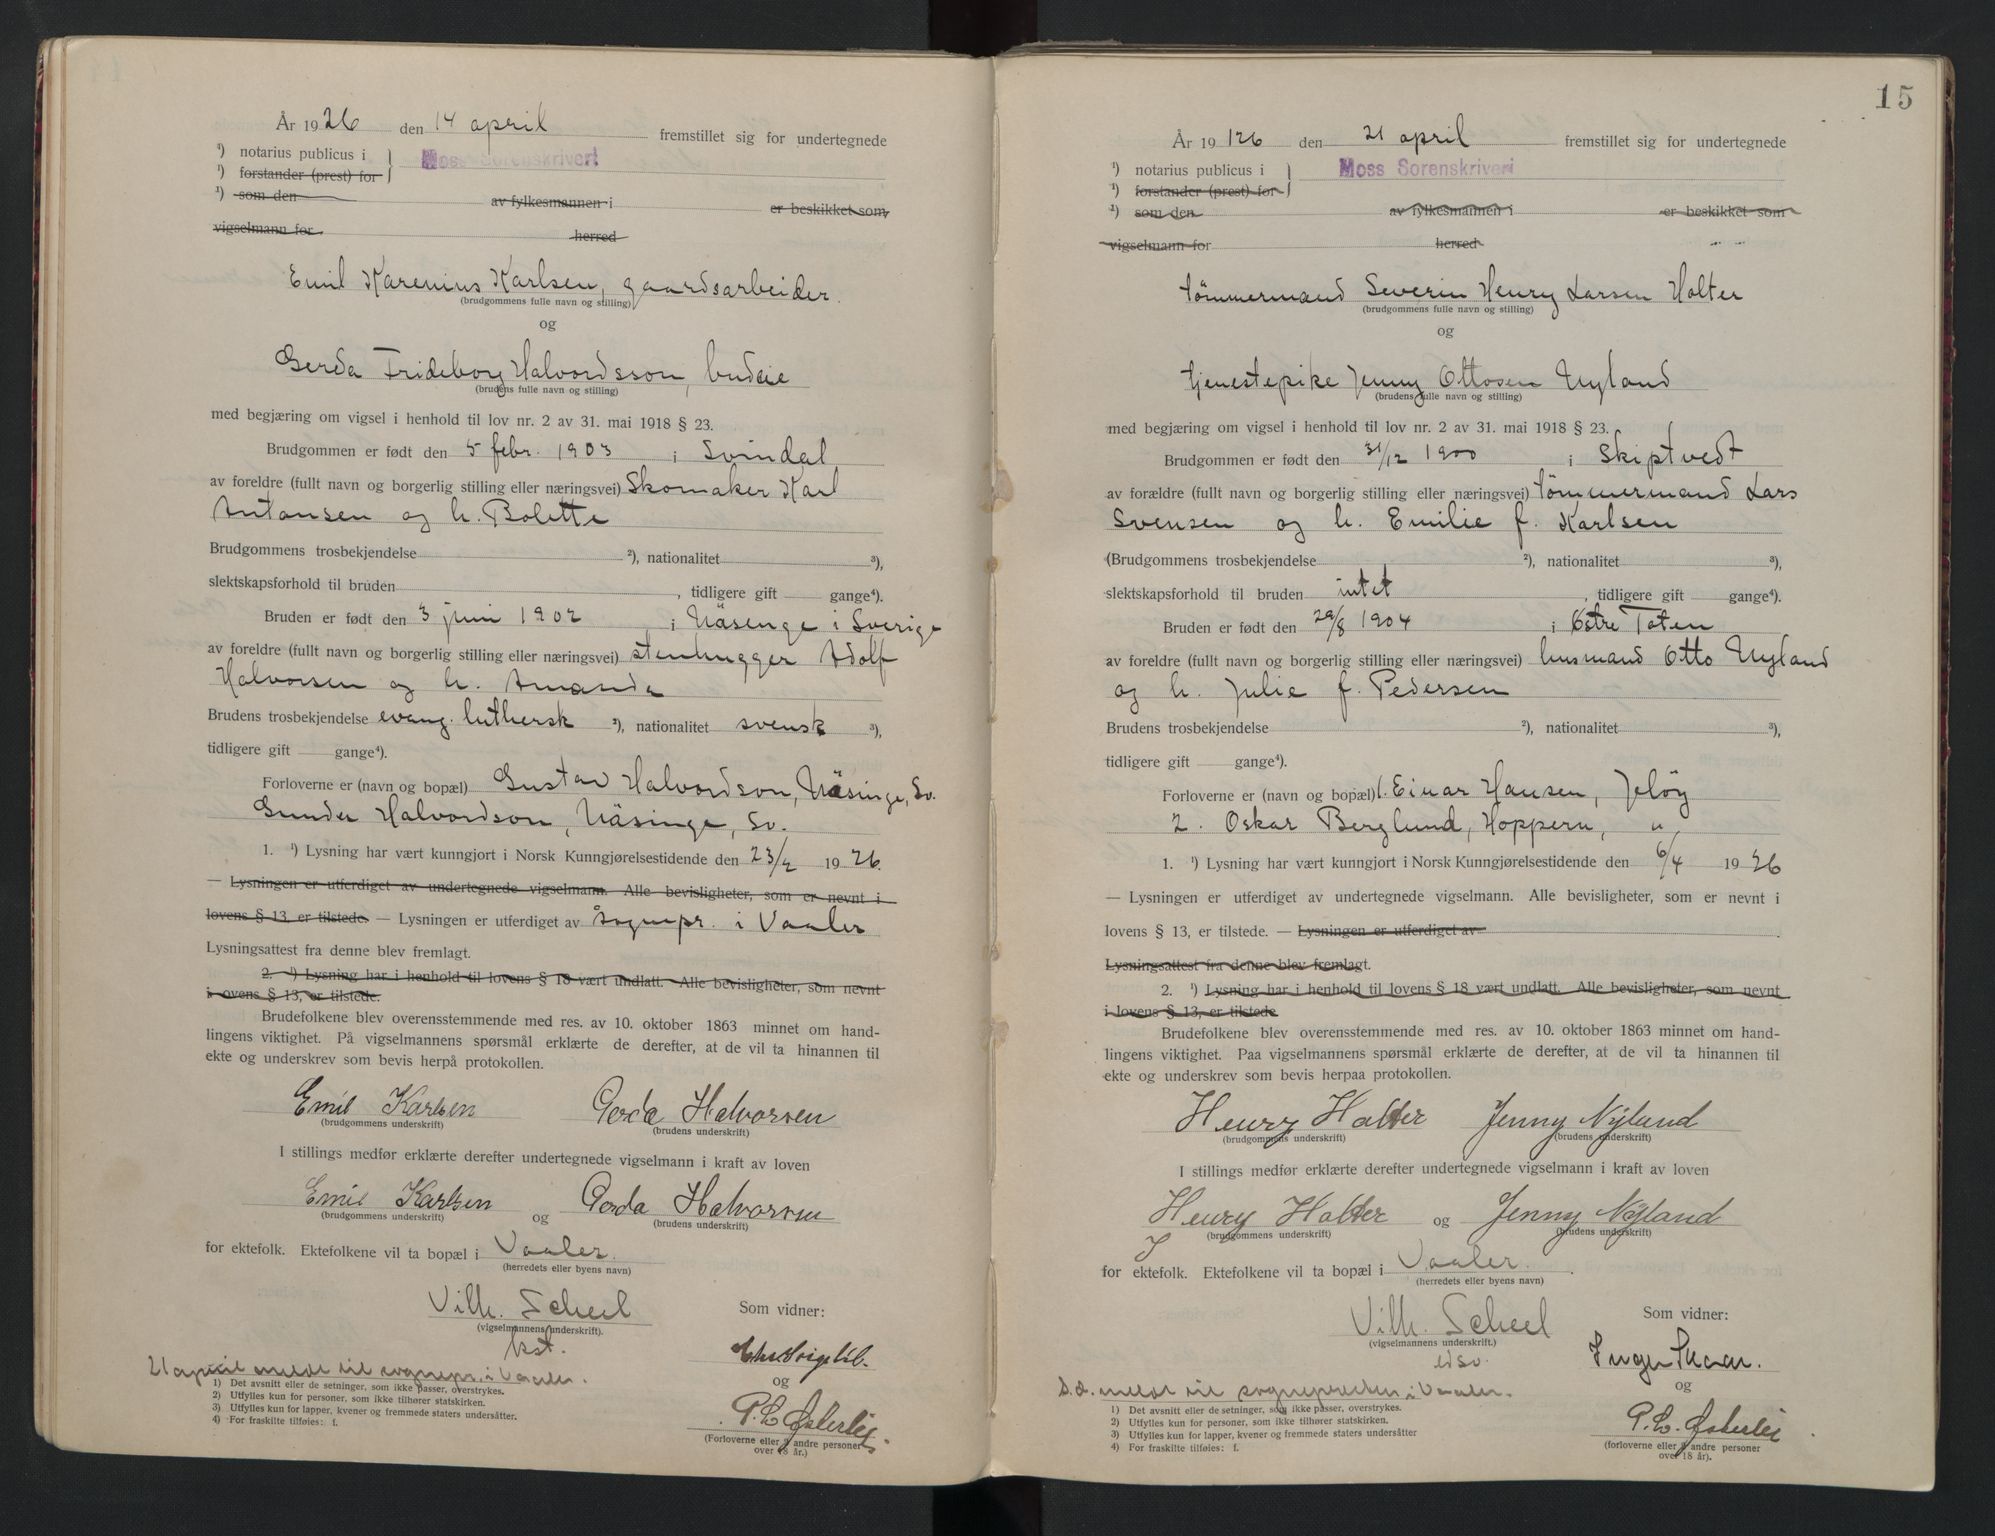 År 1926 den 14 april fremstillet sig for undertegnede
¹) notarius publicus i } Moss Sorenskriveri
¹) forstander (prest) for
¹) som den av fylkesmannen i er beskikket som
vigselmann for herred
Emil Karenius Karlsen, gaardsarbeider.
(brudgommens fulle navn og stilling)
og
Gerda Frideborg Halvordsson, budeie
(brudens fulle navn og stilling)
med begjæring om vigsel i henhold til lov nr. 2 av 31. mai 1918 § 23.
Brudgommen er født den 5 febr. 1903 i Svindal
av foreldre (fullt navn og borgerlig stilling eller næringsvei) Skomaker Karl
Antonsen og h. Bolette
Brudgommens trosbekjendelse ²), nationalitet ³),
slektskapsforhold til bruden , tidligere gift gange⁴).
Bruden er født den 3 juni 1902 i Näsenge i Sverige
av foreldre (fullt navn og borgerlig stilling eller næringsvei) stenhugger Adolf
Halvorsen og h. Amanda
Brudens trosbekjendelse evang. luthersk ²), nationalitet svensk ³),
tidligere gift gange⁴).
Forloverne er (navn og bopæl) Gustav Halvordson, Näsinge, Sv.
Gunder Halvordson, Näsinge, Sv.
1. ¹) Lysning har vært kunngjort i Norsk Kunngjørelsestidende den 23/2 1926.
— Lysningen er utferdiget av undertegnede vigselmann. Alle bevisligheter, som er nevnt i
lovens § 13, er tilstede. — Lysningen er utferdiget av sognepr. i Vaaler
Lysningsattest fra denne blev fremlagt.
2. ¹) Lysning har i henhold til lovens § 18 vært undlatt. Alle bevisligheter, som nevnt
i lovens § 13, er tilstede.
Brudefolkene blev overensstemmende med res. av 10. oktober 1863 minnet om hand-
lingens viktighet. På vigselmannens spørsmål erklærte de derefter, at de vil ta hinannen til
ekte og underskrev som bevis herpå protokollen.
Emil Karlsen Gerda Halvorsen
(brudgommens underskrift) (brudens underskrift)
I stillings medfør erklærte derefter undertegnede vigselmann i kraft av loven
Emil Karlsen og Gerda Halvorsen
(brudgommens underskrift) (brudens underskrift)
for ektefolk. Ektefolkene vil ta bopæl i Vaaler.
(herredets eller byens navn)
Vilh. Scheel Som vidner:
(vigselmannens underskrift).
kst.
21 april meldt til sognepr. i Vaaler.
og
P. E. Østerlie
(Forloverne eller 2 andre personer
over 18 år.)
1) Det avsnitt eller de setninger, som ikke passer, overstrykes.
2) Utfylles kun for personer, som ikke tilhører statskirken.
3) Utfylles kun for lapper, kvener og fremmede staters undersåtter.
4) For fraskilte tilføies: f.
15
År 19126 den 21 april fremstillet sig for undertegnede
¹) notarius publicus i } Moss Sorenskriveri
¹) forstander (prest) for
¹) som den av fylkesmannen i er beskikket som
vigselmann for herred
tömmermand Severin Henry Larsen Holter
(brudgommens fulle navn og stilling)
og
tjenestepike Jenny Ottosen Nyland
(brudens fulle navn og stilling)
med begjæring om vigsel i henhold til lov nr. 2 av 31. mai 1918 § 23.
Brudgommen er født den 31/12 1900 i Skiptvedt
av forældre (fullt navn og borgerlig stilling eller næringsvei) tömmermand Lars
Svensen og h. Emilie f. Karlsen
(Brudgommens trosbekjendelse ²), nationalitet ³),
slektskapsforhold til bruden intet , tidligere gift gange⁴).
Bruden er født den 29/8 1904 i Östre Toten
av foreldre (fullt navn og borgerlig stilling eller næringsvei) husmand Otto Nyland
og h. Julie f. Pedersen
Brudens trosbekjendelse ²), nationalitet ³),
tidligere gift gange⁴).
Forloverne er (navn og bopæl) 1. Einar Hansen, Jelöy
2. Oskar Berglund, Hoppern, "
1. ¹) Lysning har vært kunngjort i Norsk Kunngjørelsestidende den 6/4 1926
— Lysningen er utferdiget av undertegnede vigselmann. Alle bevisligheter, som er nevnt i
lovens § 13, er tilstede. — Lysningen er utferdiget av .
Lysningsattest fra denne blev fremlagt.
2. ¹) Lysning har i henhold til lovens § 18 vært undlatt. Alle bevisligheter, som nevnt
i lovens § 13, er tilstede
Brudefolkene blev overensstemmende med res. av 10. oktober 1863 minnet om hand-
lingens viktighet. Paa vigselmannens spørsmål erklærte de derefter, at de vil ta hinannen til
ekte og underskrev som bevis herpaa protokollen.
Henry Holter Jenny Nyland
(brudgommens underskrift) (brudens underskrift)
I stillings medfør erklærte derefter undertegnede vigselmann i kraft av loven
Henry Holter og Jenny Nyland
(brudgommens underskrift) (brudens underskrift)
for ektefolk. Ektefolkene vil ta bopæl i Vaaler.
(herredets eller byens navn)
Vilh. Scheel Som vidner:
(vigselmannens underskrift).
D. d. meldt til sognepresten i Vaaler.
og
P. E. Østerlie
(forloverne eller 2 andre personer
over 18 år).
1) Det avsnitt eller de setninger, som ikke passer, overstrykes.
2) Utfylles kun for personer, som ikke tilhører statskirken.
3) Utfylles kun for lapper, kvener og fremmede staters undersåtter
4) For fraskilte tilføies: f.